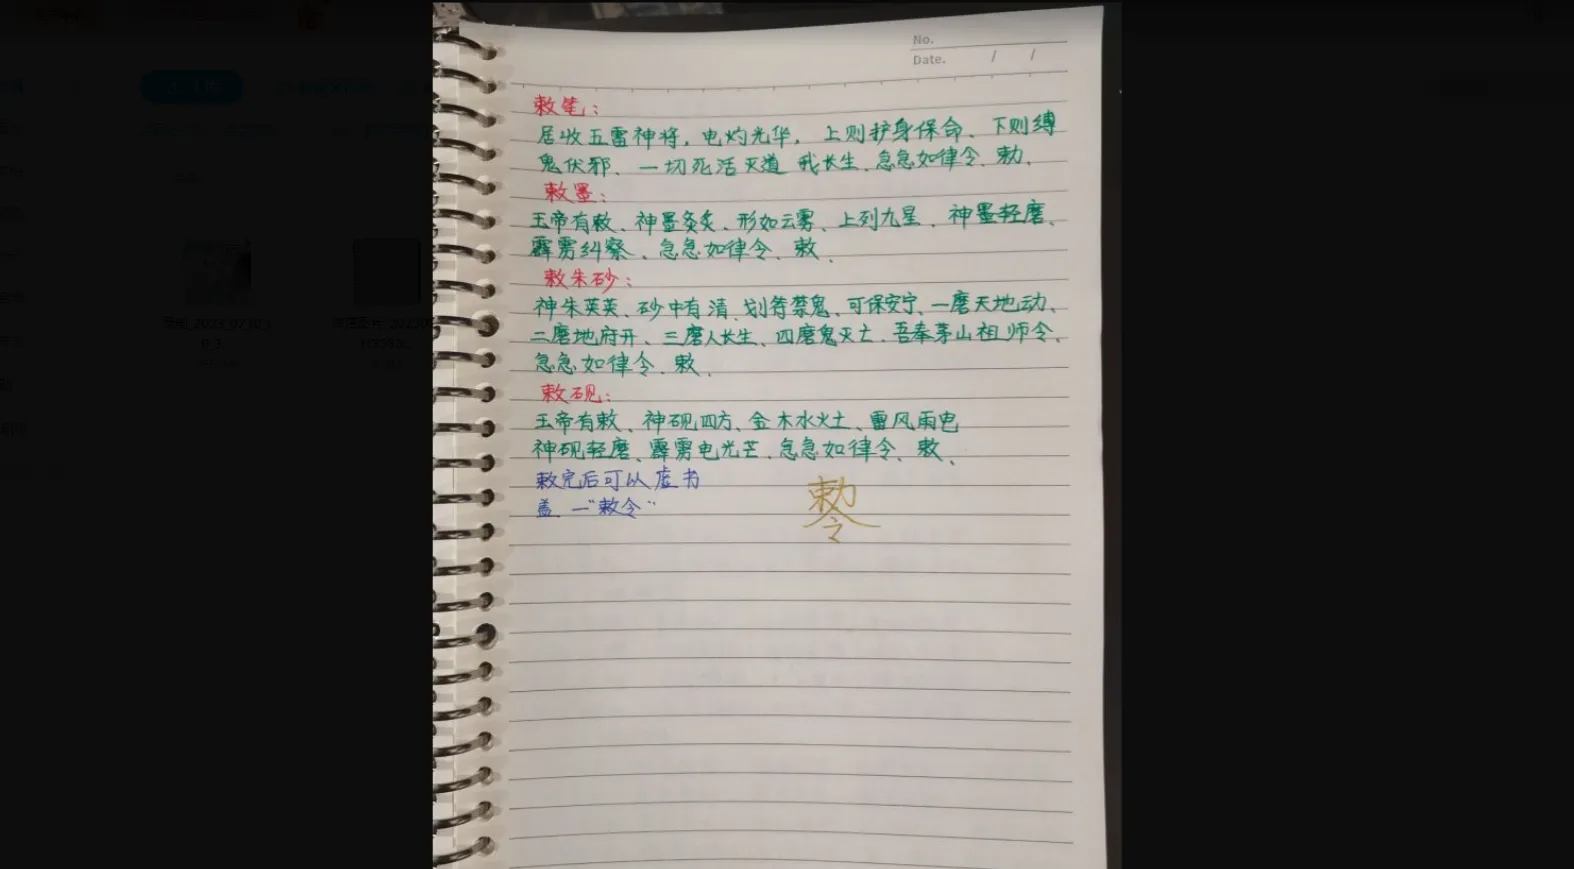 No.
Date. / /
敕笔：
居收五雷神将，电灼光华，上则护身保命、下则缚
鬼伏邪、一切死活灭道 我长生、急急如律令、勅、
敕墨：
玉帝有敕、神墨灸炙、形如云雾、上列九星、神墨轻磨、
霹雳纠察、急急如律令、敕、
敕朱砂：
神朱英英、砂中有清、划符禁鬼、可保安宁、一磨天地动、
二磨地府开、三磨人长生、四磨鬼灭亡、吾奉茅山祖师令、
急急如律令、敕、
敕砚：
玉帝有敕、神砚四方、金木水火土、雷风雨电
神砚轻磨、霹雳电光芒、急急如律令、敕、
敕完后可以虚书
盖、一“敕令”
勅令